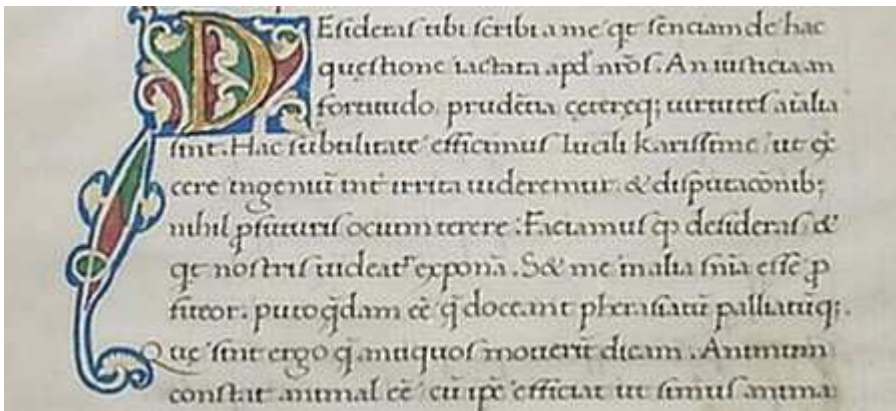 DEsideras tibi scribi a me q̅t senciam de hac
questione iactata apd̕ nr̅os. An iusticia an
fortitudo, prude̅tia ceteręq; uirtutes ai̅alia
sint. Hac subtilitate effecimus Lucili karissime, ut ex
cere ingeniu̅ int̕ irrita uideremur, & disputaco̅nib;
nihil ꝓfuturis ocium terere. Faciamus qp desideras, &
q̅t nostris uideat᷑ expona̅. Sed me in alia sn̅ia esse̅ ꝓ
fiteor. puto q̅dam ee̅ q̅ doceant pherasiatu̅ palliatu̅q;.
Que sint ergo q̅ antiquos moueri̅t dicam. Animum
constat animal ee̅, cu̅ ip̅e efficiat ut simus anima